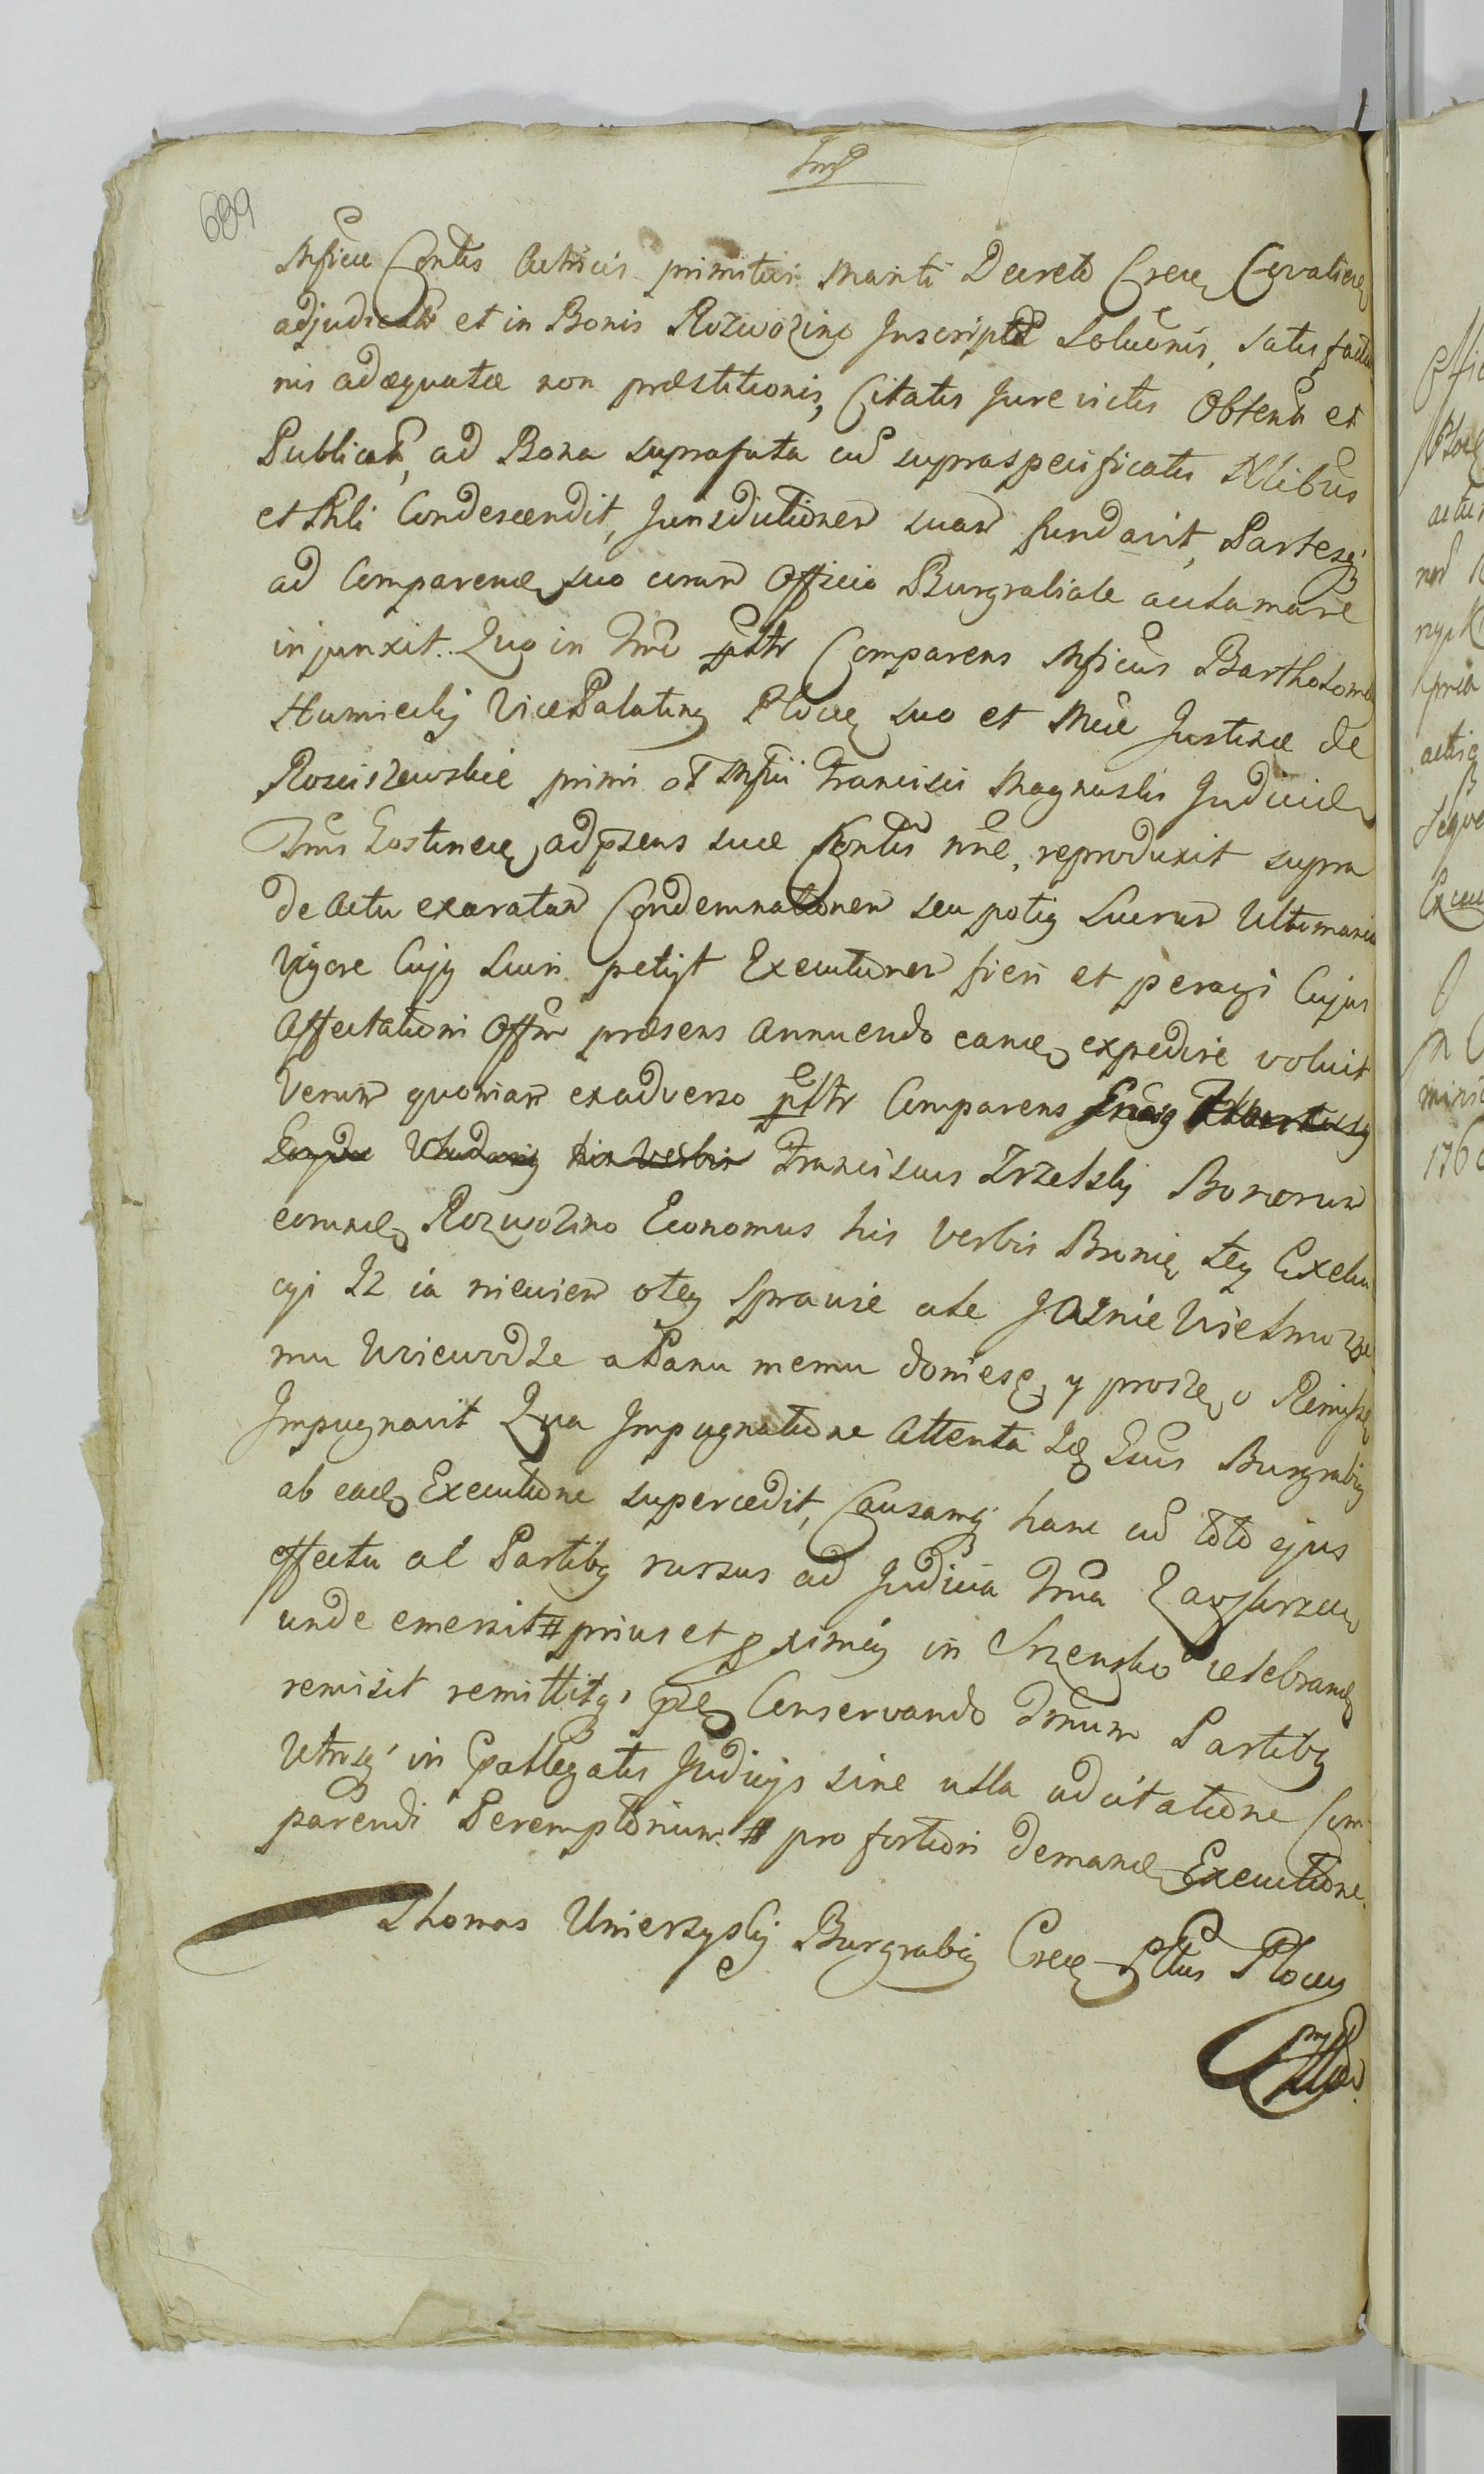 689
Mficæ Contis Actricis primitivi Mariti Decreto Cæreæ Czeratien
adjudicatæ et in Bonis Rozwozino Inscriptæ Solutionis, satisfactio
nis adæquatæ non præstitionis, Citatis Jure victis Obtent et
Publicat, ad Bona suprafata cum supraspecificatis Nlibus
et Mli Condescendit, Jurisdictionem suam fundavit, Partesq
ad Comparend suo coram Officio Burgrabiale acclamare
injunxit. Quo in Trno psltr Comparens Mficus Bartholom
Humiecky Vice Palatinus Plocen suo et Mcæ Justinæ de
Rosciszewskie primi ot Mficii Francisci Magnuski Judicis
Trris Gostinen, adpræsens suæ Contis nne, reproduxit supra
de actu exaratam Condemnationem seu potius Lucrum Ultimarium
Vigore Cujus Lucri petiyt Executionem fieri et peragi Cujus
Affectationi Offm præsens annuendo eand expedire voluit
Verum quoniam exadverso psltr Comparens
Franciscus Trzetsky Bonorum
eorund Rozwozino Economus his verbis Bronię tey Exeku
cyi Iz ia niewiem otey Sprawie ale Jaśnie Wielmożne
mu Woiewodzie a Panu memu doniesę y proszę o Remissę
Impugnavit Qua Impugnatione Attenta Idem Gsus Burgrabius
ab ead Executione supercedit, Causamq hanc cum toto ejus
effectu ac Partibus rursus ad Judicia Trria Zawskrzen
unde emersit # prius et proximius in Szrensko celebrand
remisit remittitq præs Conservando Trnum Partibus
Utrisq in præallegatis Judicijs sine ulla adcitatione Com
parendi Peremptorium # pro fortiori demand Executione.
Thomas Unierzysky Burgrabius Cren Pltus Plocen